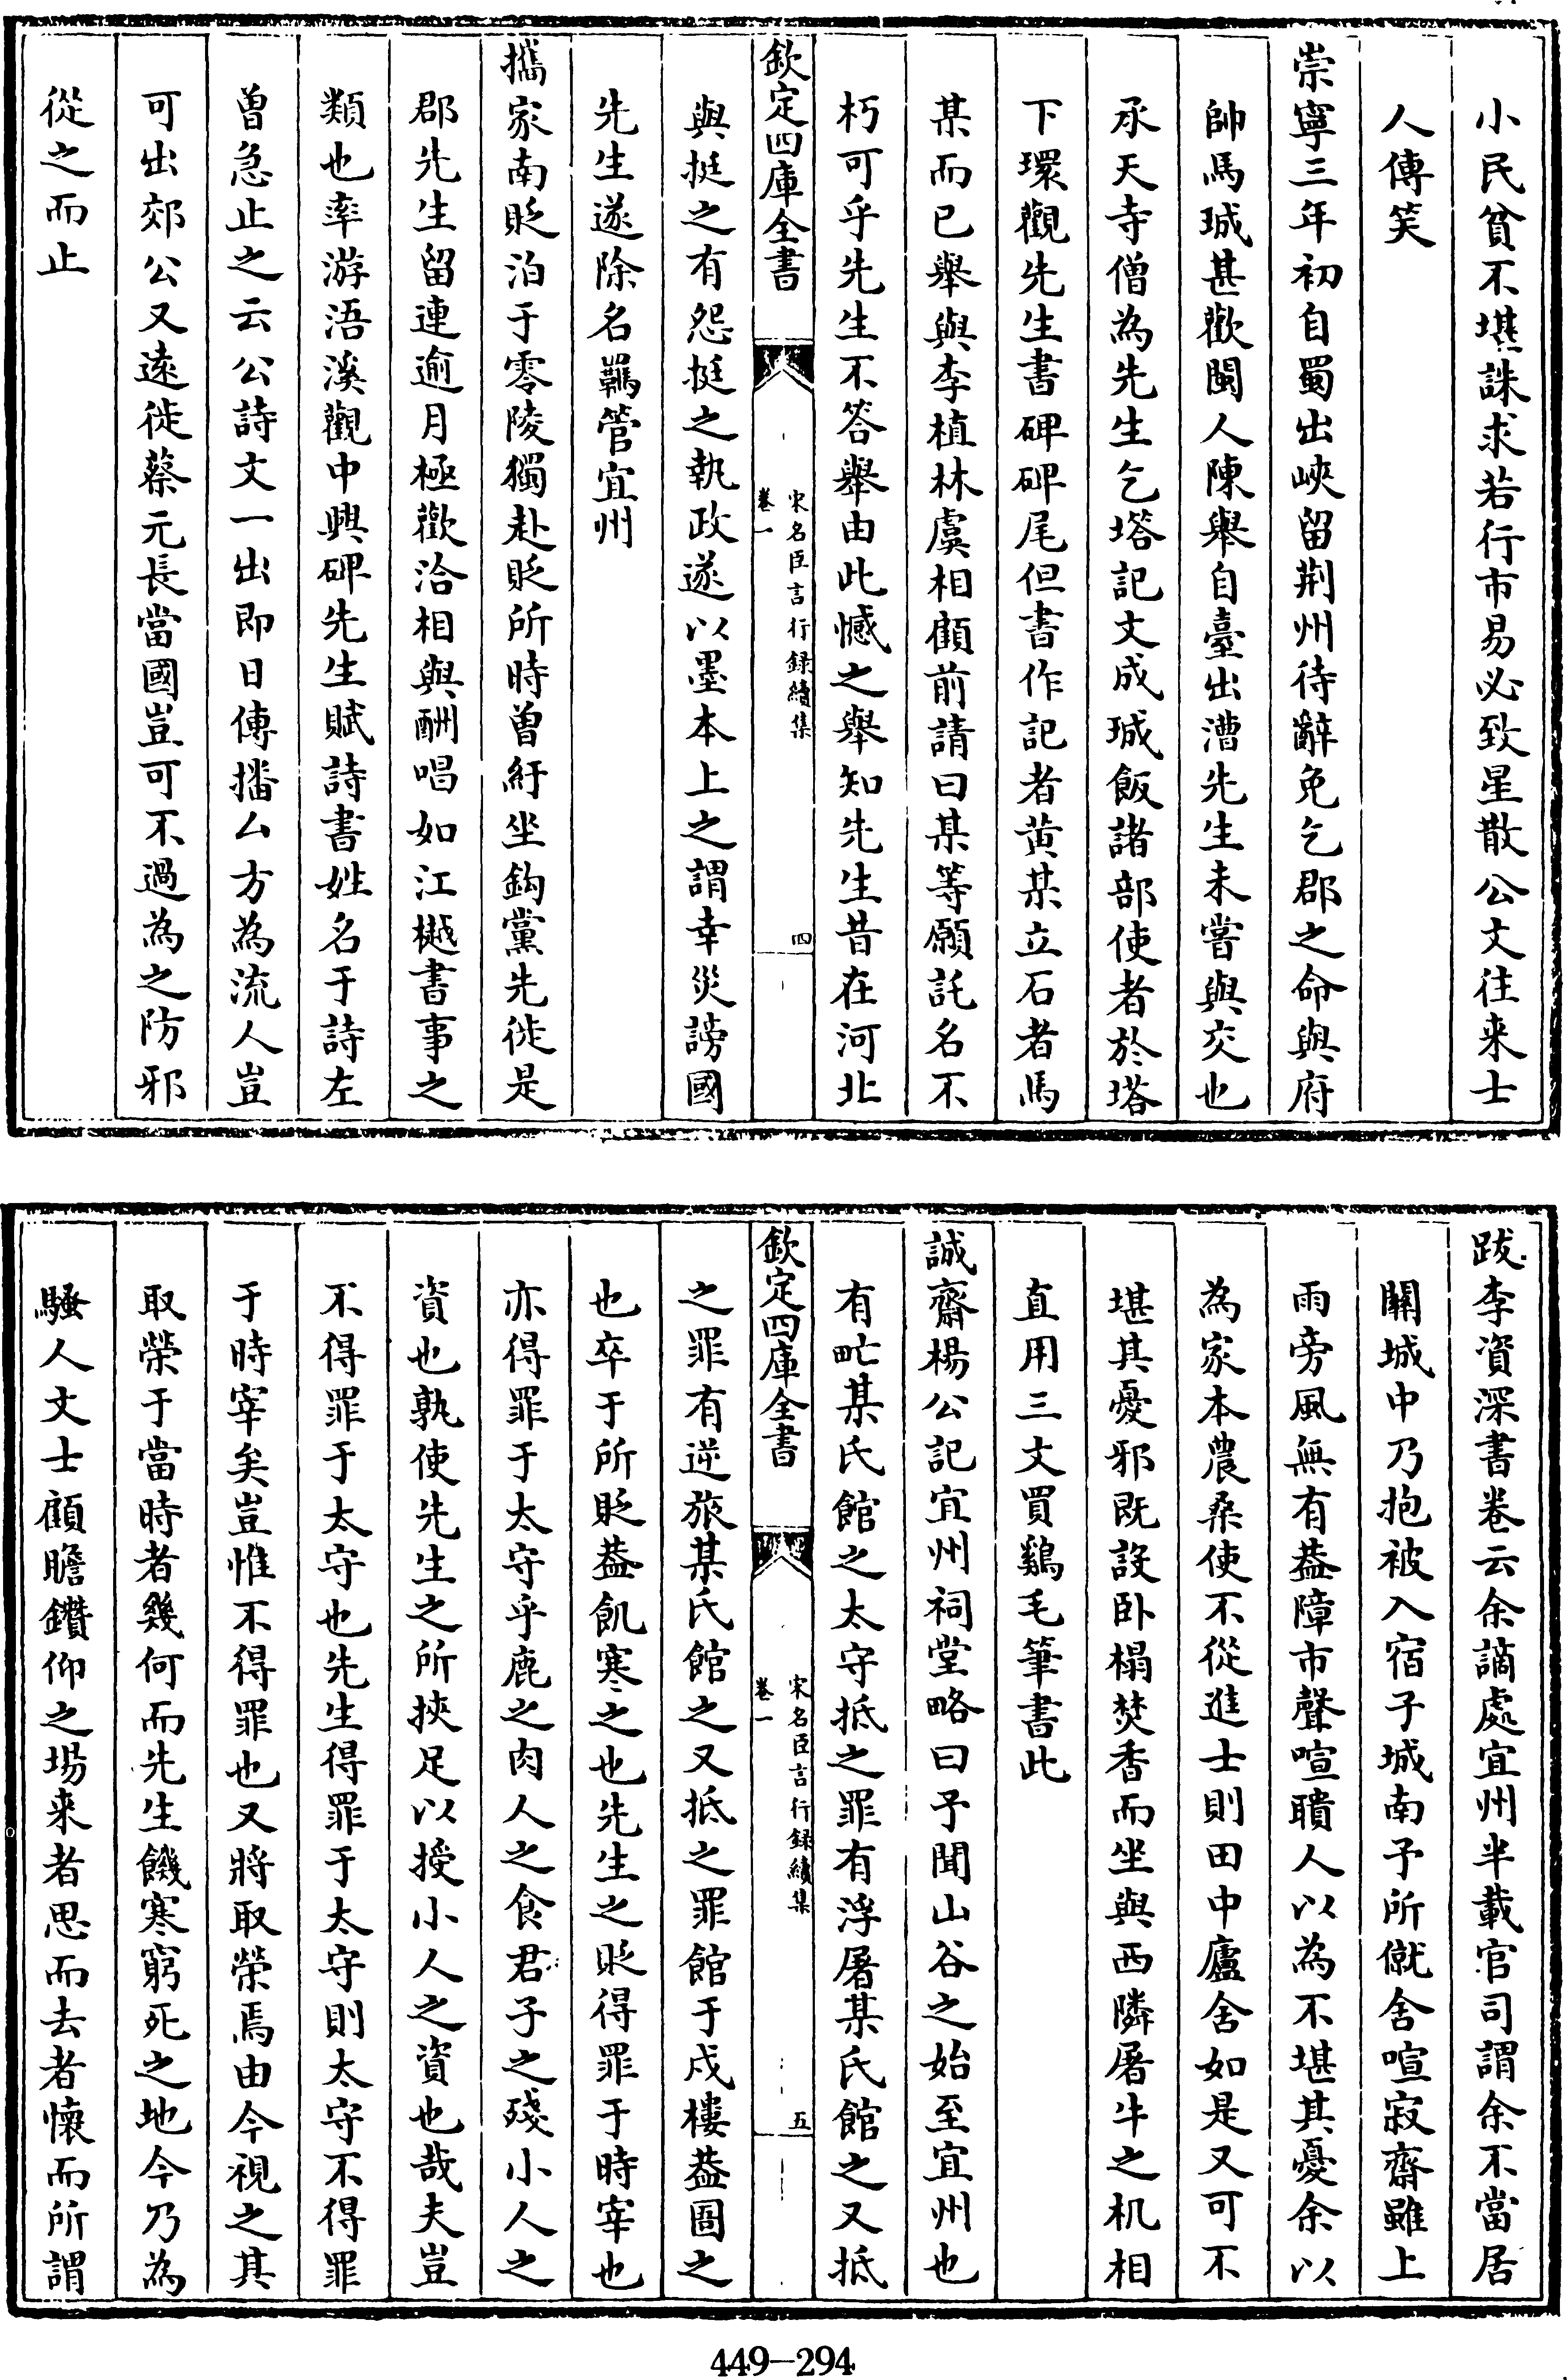 小民貧不堪誅求若行市易必致星散公文往来士
人傳笑
崇寧三年初自蜀出峽留荆州待辭免乞郡之命與府
帥馬瑊甚歡閩人陳舉自臺出漕先生未嘗與交也
承天寺僧為先生乞塔記文成瑊飯諸部使者於塔
下環觀先生書碑碑尾但書作記者黄某立石者馬
某而已舉與李植林虞相顧前請曰某等願託名不
朽可乎先生不答舉由此憾之舉知先生昔在河北
欽定四庫全書
宋名臣言行録續集
卷一
四
與挺之有怨挺之執政遂以墨本上之謂幸災謗國
先生遂除名羈管宜州
攜家南貶泊于零陵獨赴貶所時曾紆坐鈎黨先徙是
郡先生留連逾月極歡洽相與酬唱如江樾書事之
類也率游浯溪觀中興碑先生賦詩書姓名于詩左
曾急止之云公詩文一出即日傳播厶方為流人豈
可出郊公又遠徙蔡元長當國豈可不過為之防邪
從之而止
跋李資深書卷云余謫處宜州半載官司謂余不當居
關城中乃抱被入宿子城南予所僦舍喧寂齋雖上
雨旁風無有葢障市聲喧聵人以為不堪其憂余以
為家本農桑使不從進士則田中廬舍如是又可不
堪其憂邪既設卧榻焚香而坐與西隣屠牛之机相
直用三文買鷄毛筆書此
誠齋楊公記宜州祠堂略曰予聞山谷之始至宜州也
有甿某氏館之太守抵之罪有浮屠某氏館之又抵
欽定四庫全書
宋名臣言行録續集
卷一
五
之罪有逆旅某氏館之又抵之罪館于戍樓葢圄之
也卒于所貶葢飢寒之也先生之貶得罪于時宰也
亦得罪于太守乎鹿之肉人之食君子之殘小人之
資也孰使先生之所挾足以授小人之資也哉夫豈
不得罪于太守也先生得罪于太守則太守不得罪
于時宰矣豈惟不得罪也又將取榮焉由今視之其
取榮于當時者幾何而先生饑寒窮死之地今乃為
騷人文士顧瞻鑽仰之場来者思而去者懷而所謂
449-294